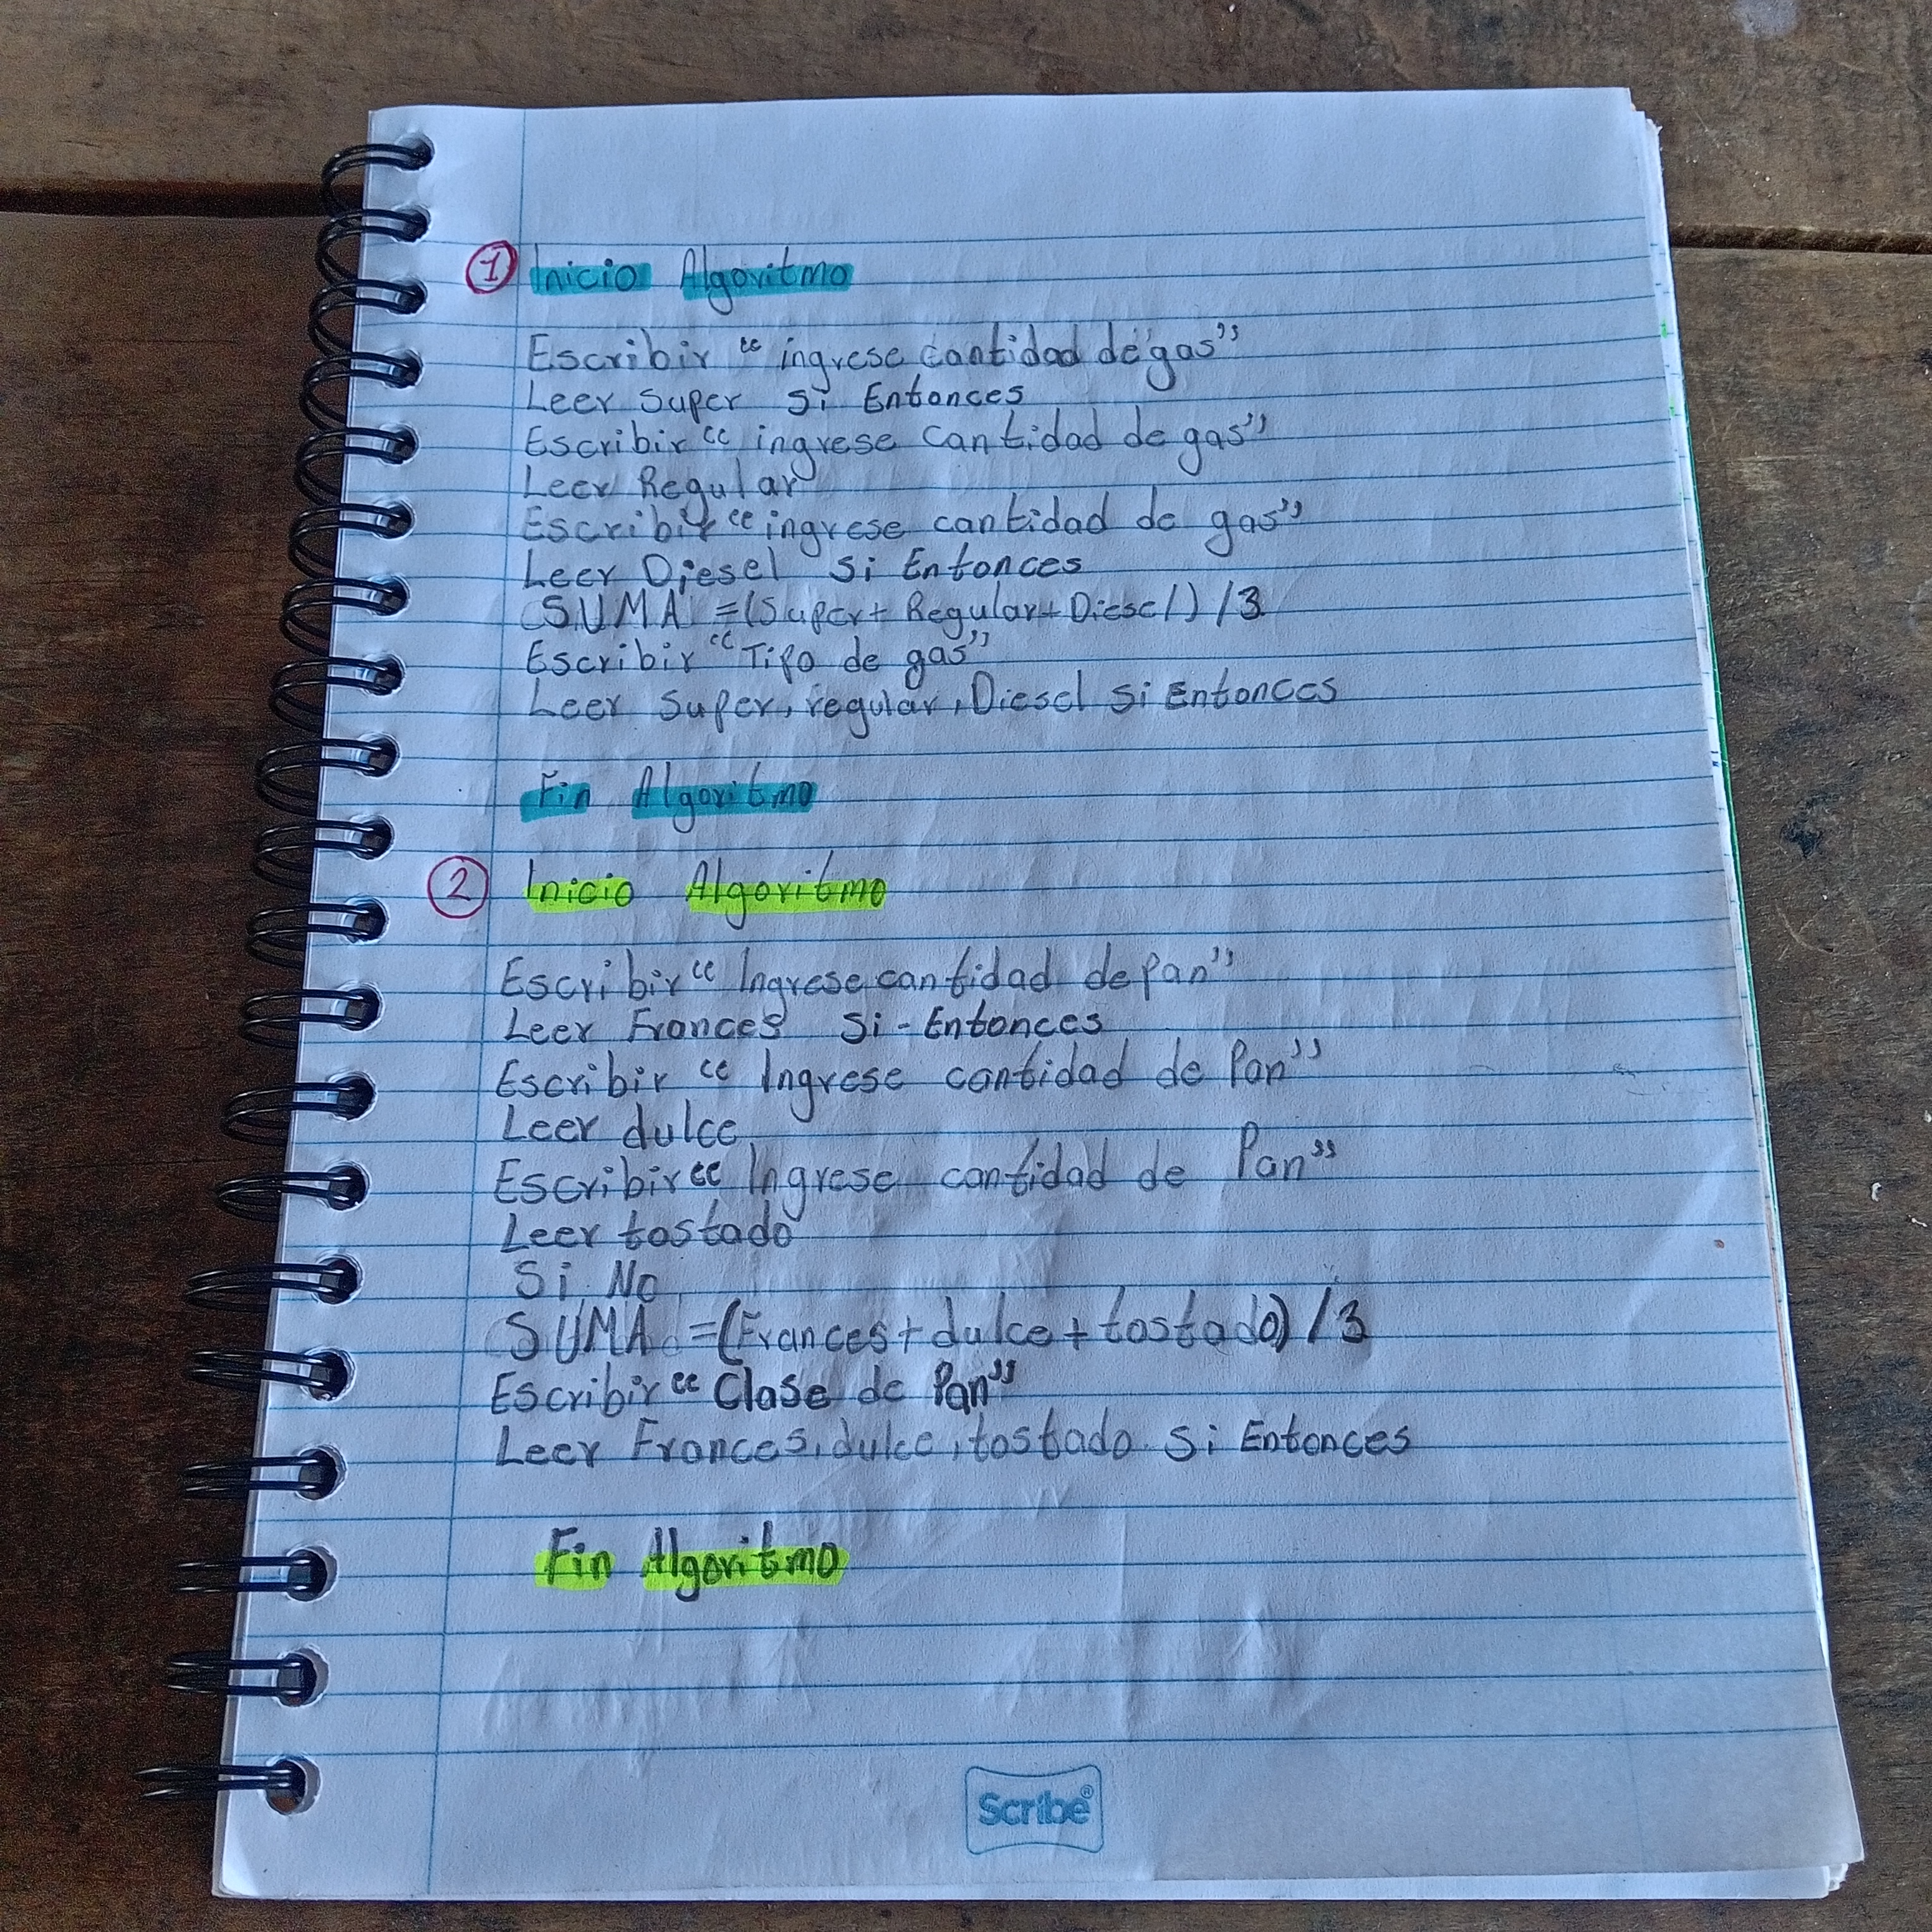 1 Inicio Algoritmo
Escribir “ ingrese cantidad de gas”
Leer Super si Entonces
Escribir “ ingrese Cantidad de gas”
Leer Regular
Escribir “ ingrese cantidad de gas”
Leer Diesel si Entonces
SUMA =(Super+ Regular+Diesel) /3
Escribir “Tipo de gas”
Leer Super, regular, Diesel si Entonces
Fin Algoritmo
2 Inicio Algoritmo
Escribir “ Ingrese cantidad de pan”
Leer Frances Si - Entonces
Escribir “ Ingrese cantidad de Pan”
Leer dulce
Escribir “ Ingrese cantidad de Pan”
Leer tostado
Si No
SUMA =(Frances+dulce+tostado) /3
Escribir “ Clase de Pan”
Leer Frances, dulce, tostado Si Entonces
Fin Algoritmo
Scribe®